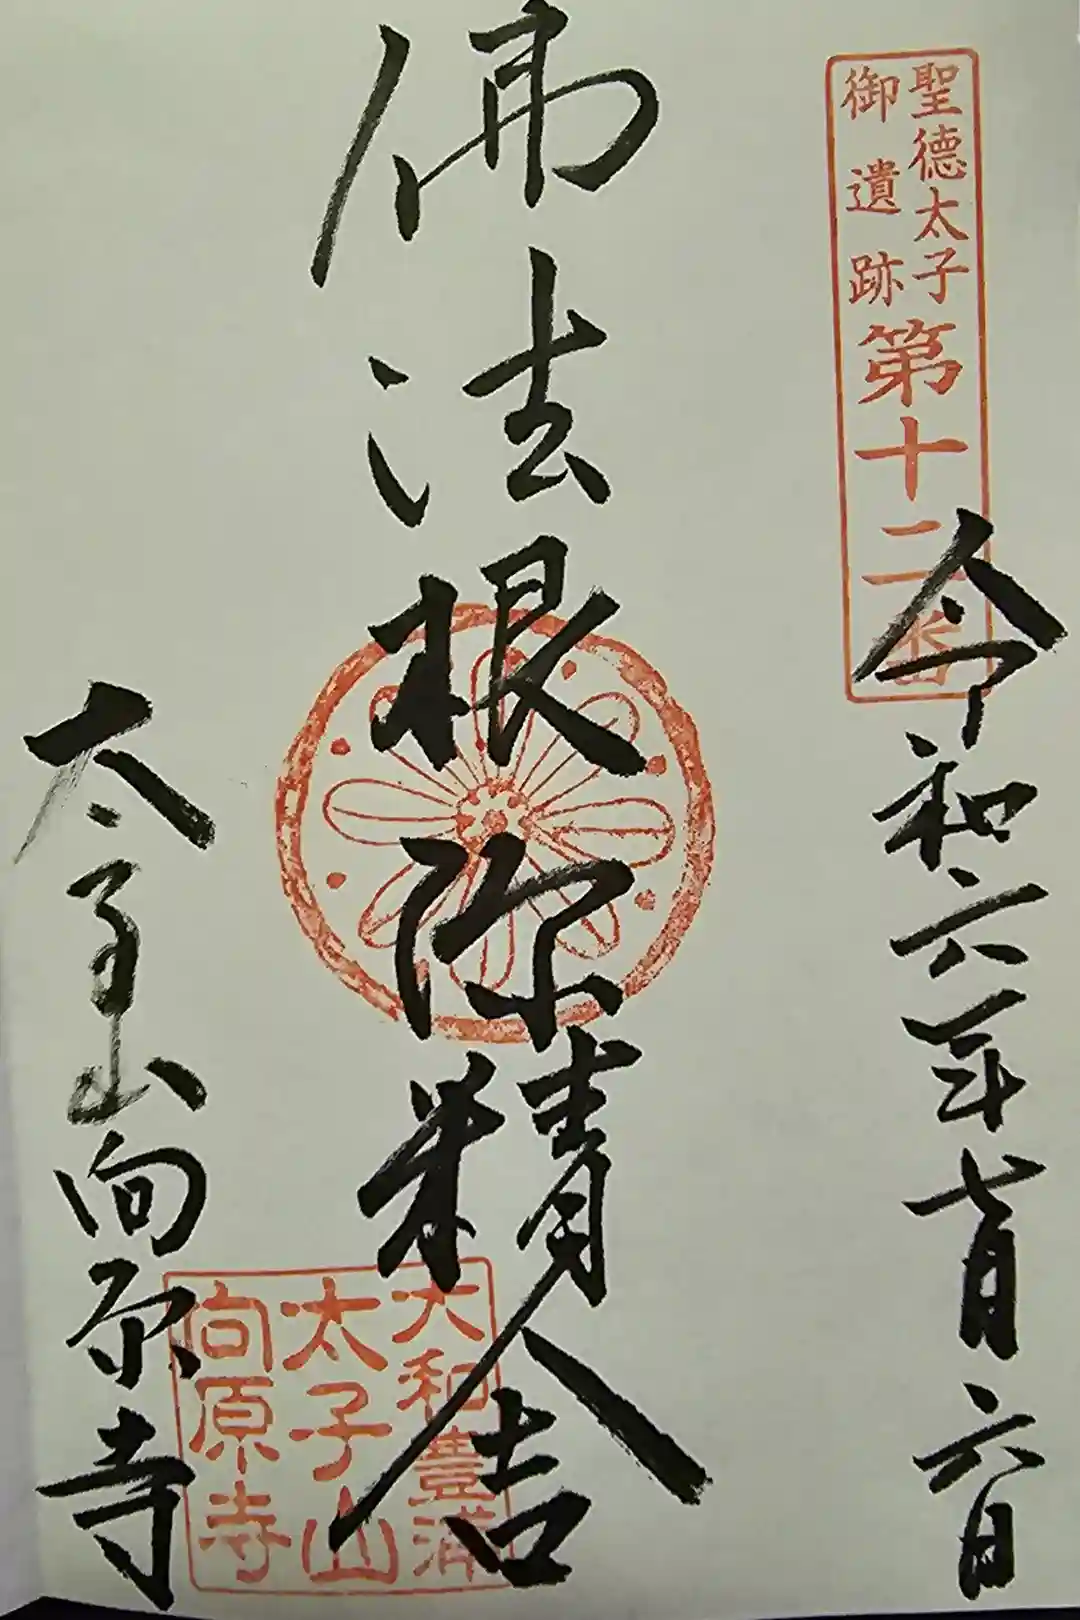 聖徳太子
御遺跡
第十二番
令和六年七月六日
佛法根源精舎
大和豊浦
太子山
向原寺
太子山向原寺